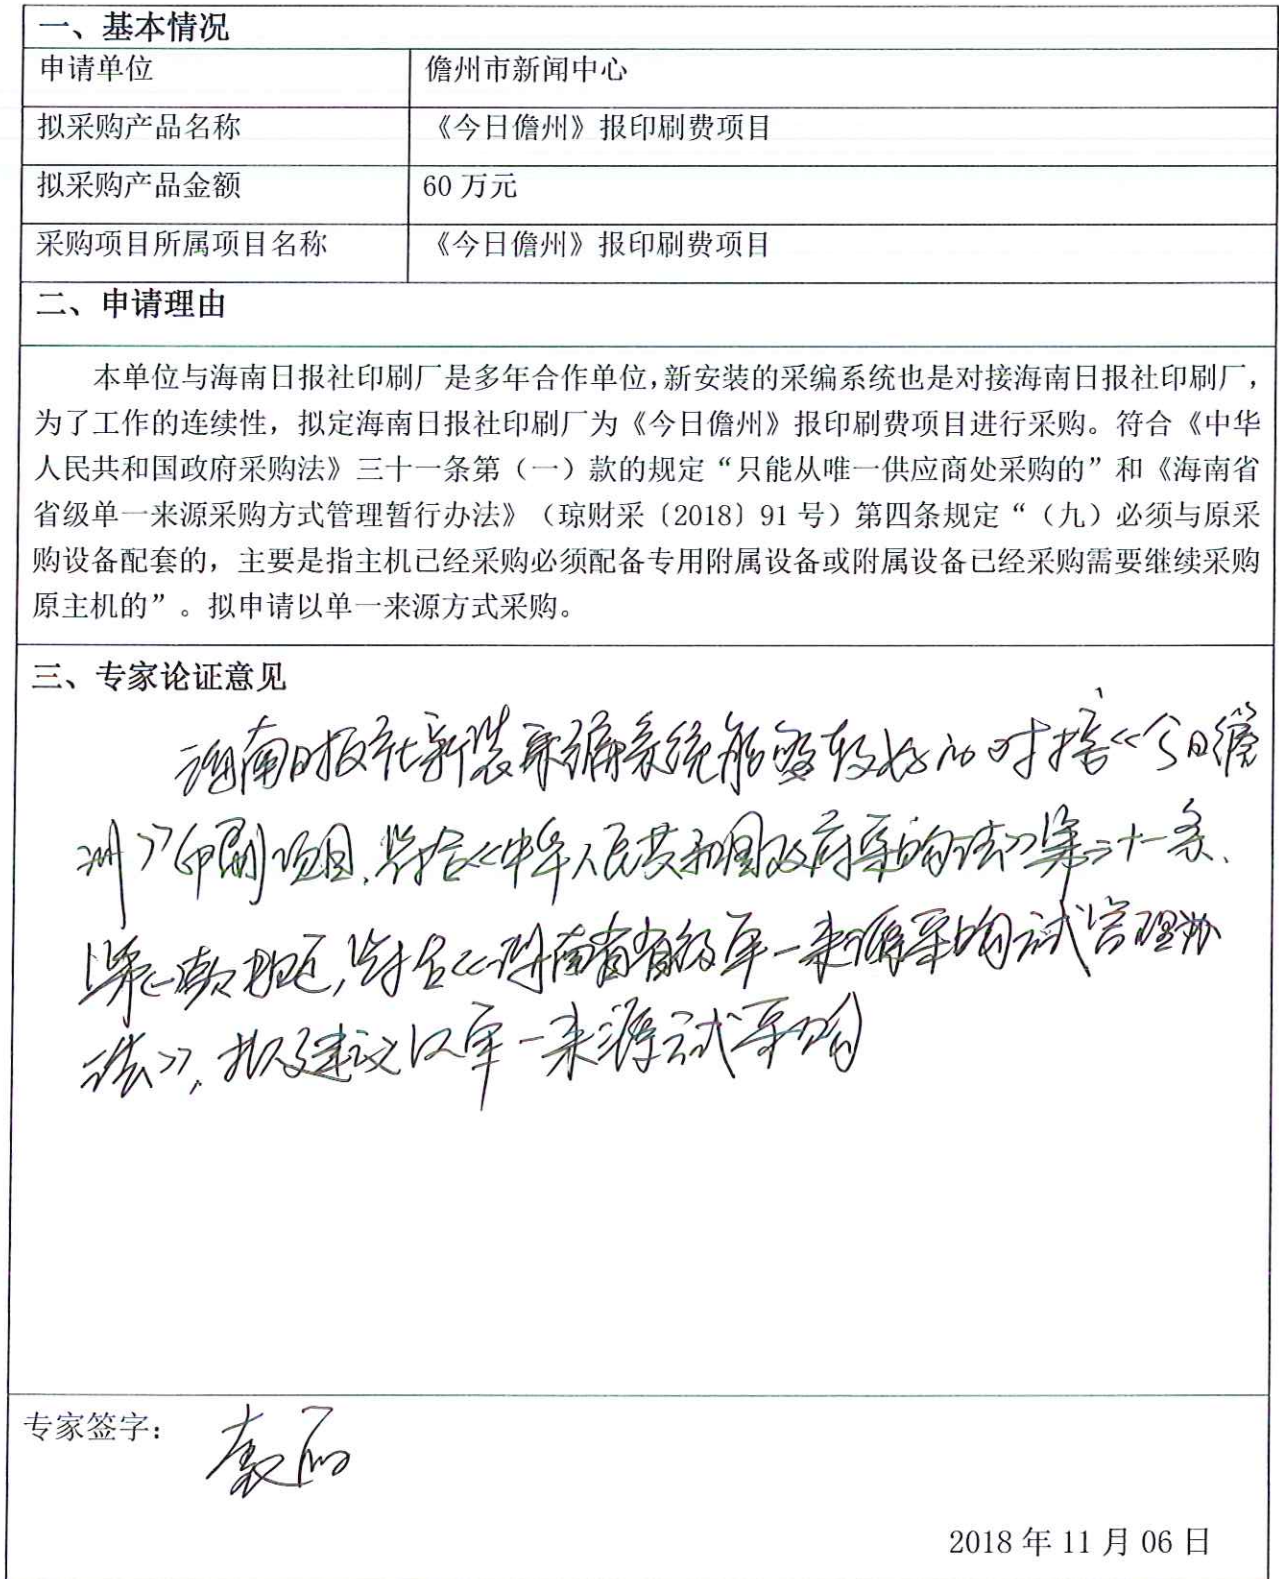 一、基本情况
申请单位 儋州市新闻中心
拟采购产品名称 《今日儋州》报印刷费项目
拟采购产品金额 60 万元
采购项目所属项目名称 《今日儋州》报印刷费项目
二、申请理由
本单位与海南日报社印刷厂是多年合作单位,新安装的采编系统也是对接海南日报社印刷厂，
为了工作的连续性，拟定海南日报社印刷厂为《今日儋州》报印刷费项目进行采购。符合《中华
人民共和国政府采购法》三十一条第（一）款的规定“只能从唯一供应商处采购的”和《海南省
省级单一来源采购方式管理暂行办法》（琼财采〔2018〕91 号）第四条规定“（九）必须与原采
购设备配套的，主要是指主机已经采购必须配备专用附属设备或附属设备已经采购需要继续采购
原主机的”。拟申请以单一来源方式采购。
三、专家论证意见
海南日报社新装采编系统能够较好的对接《今日儋
州》印刷项目,符合《中华人民共和国政府采购法》第三十一条、
第一款规定,符合《海南省省级单一来源采购式管理办
法》,拟建议以单一来源式采购
专家签字：
2018 年 11 月 06 日